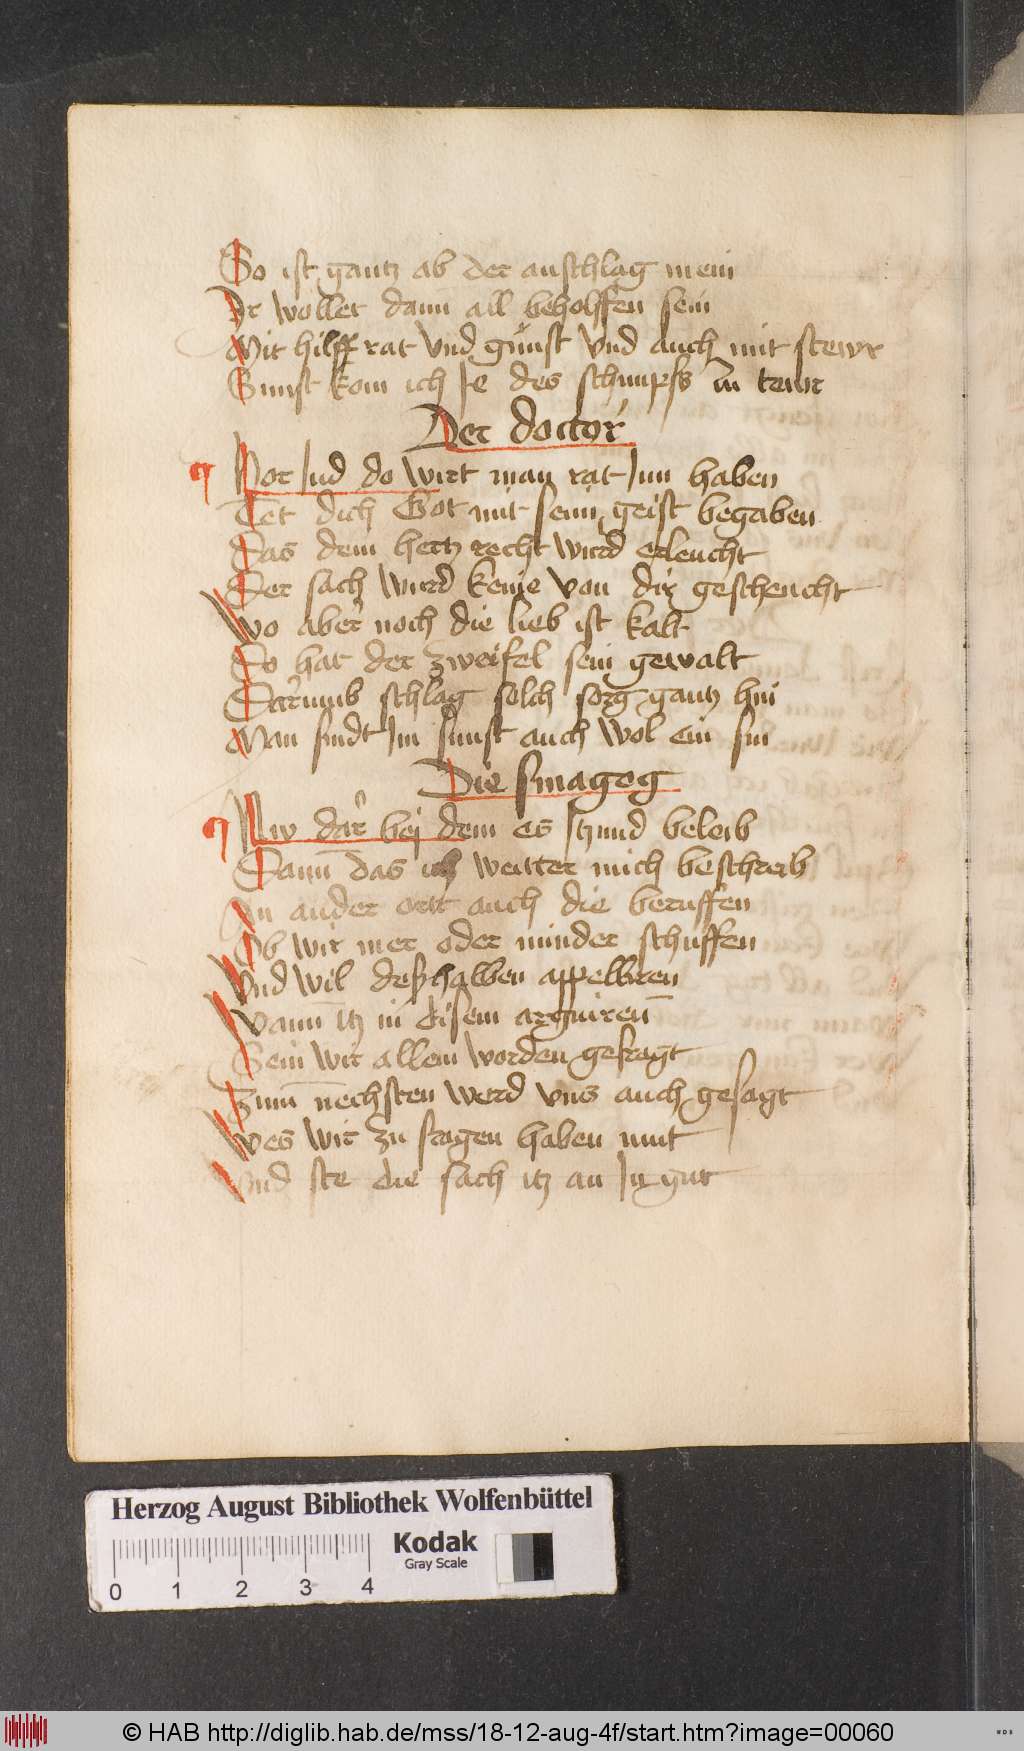 So ist gantz ab der anschlag mein
Ir wollet dann all beholffen sein
Mit hilff rat vnd gunst vnd auch mit stewr
Sunst kom ich Je des schimpfs in tewr
Der doctor
Hor Jud do wirt man rat Inn haben
Tet dich Got mit seim geist begaben
Das dein hertz recht wurd erleucht
Der sach wurd keine von dir gescheucht
Wo aber noch die lieb ist kalt
Do hat der zweifel sein gewalt
Darumb schlag solch sorg gantz hin
Man findt Im sunst auch wol ein sin
Die sinagog
Nw dar bej dem es Itzund beleib
Dann das ich weitter mich beschreib
In ander ortt auch die beruffen
Ob wir mer oder minder schuffen
Vnd wil deshalben appelliren
Wann itz in disem arguiren
Sein wir allein worden gefragt
Zum nechsten werd vns auch gesagt
Wes wir zu fragen haben mut
Vnd ste die sach itz an In gut
Herzog August Bibliothek Wolfenbüttel
Kodak
Gray Scale
0 1 2 3 4
© HAB http://diglib.hab.de/mss/18-12-aug-4f/start.htm?image=00060